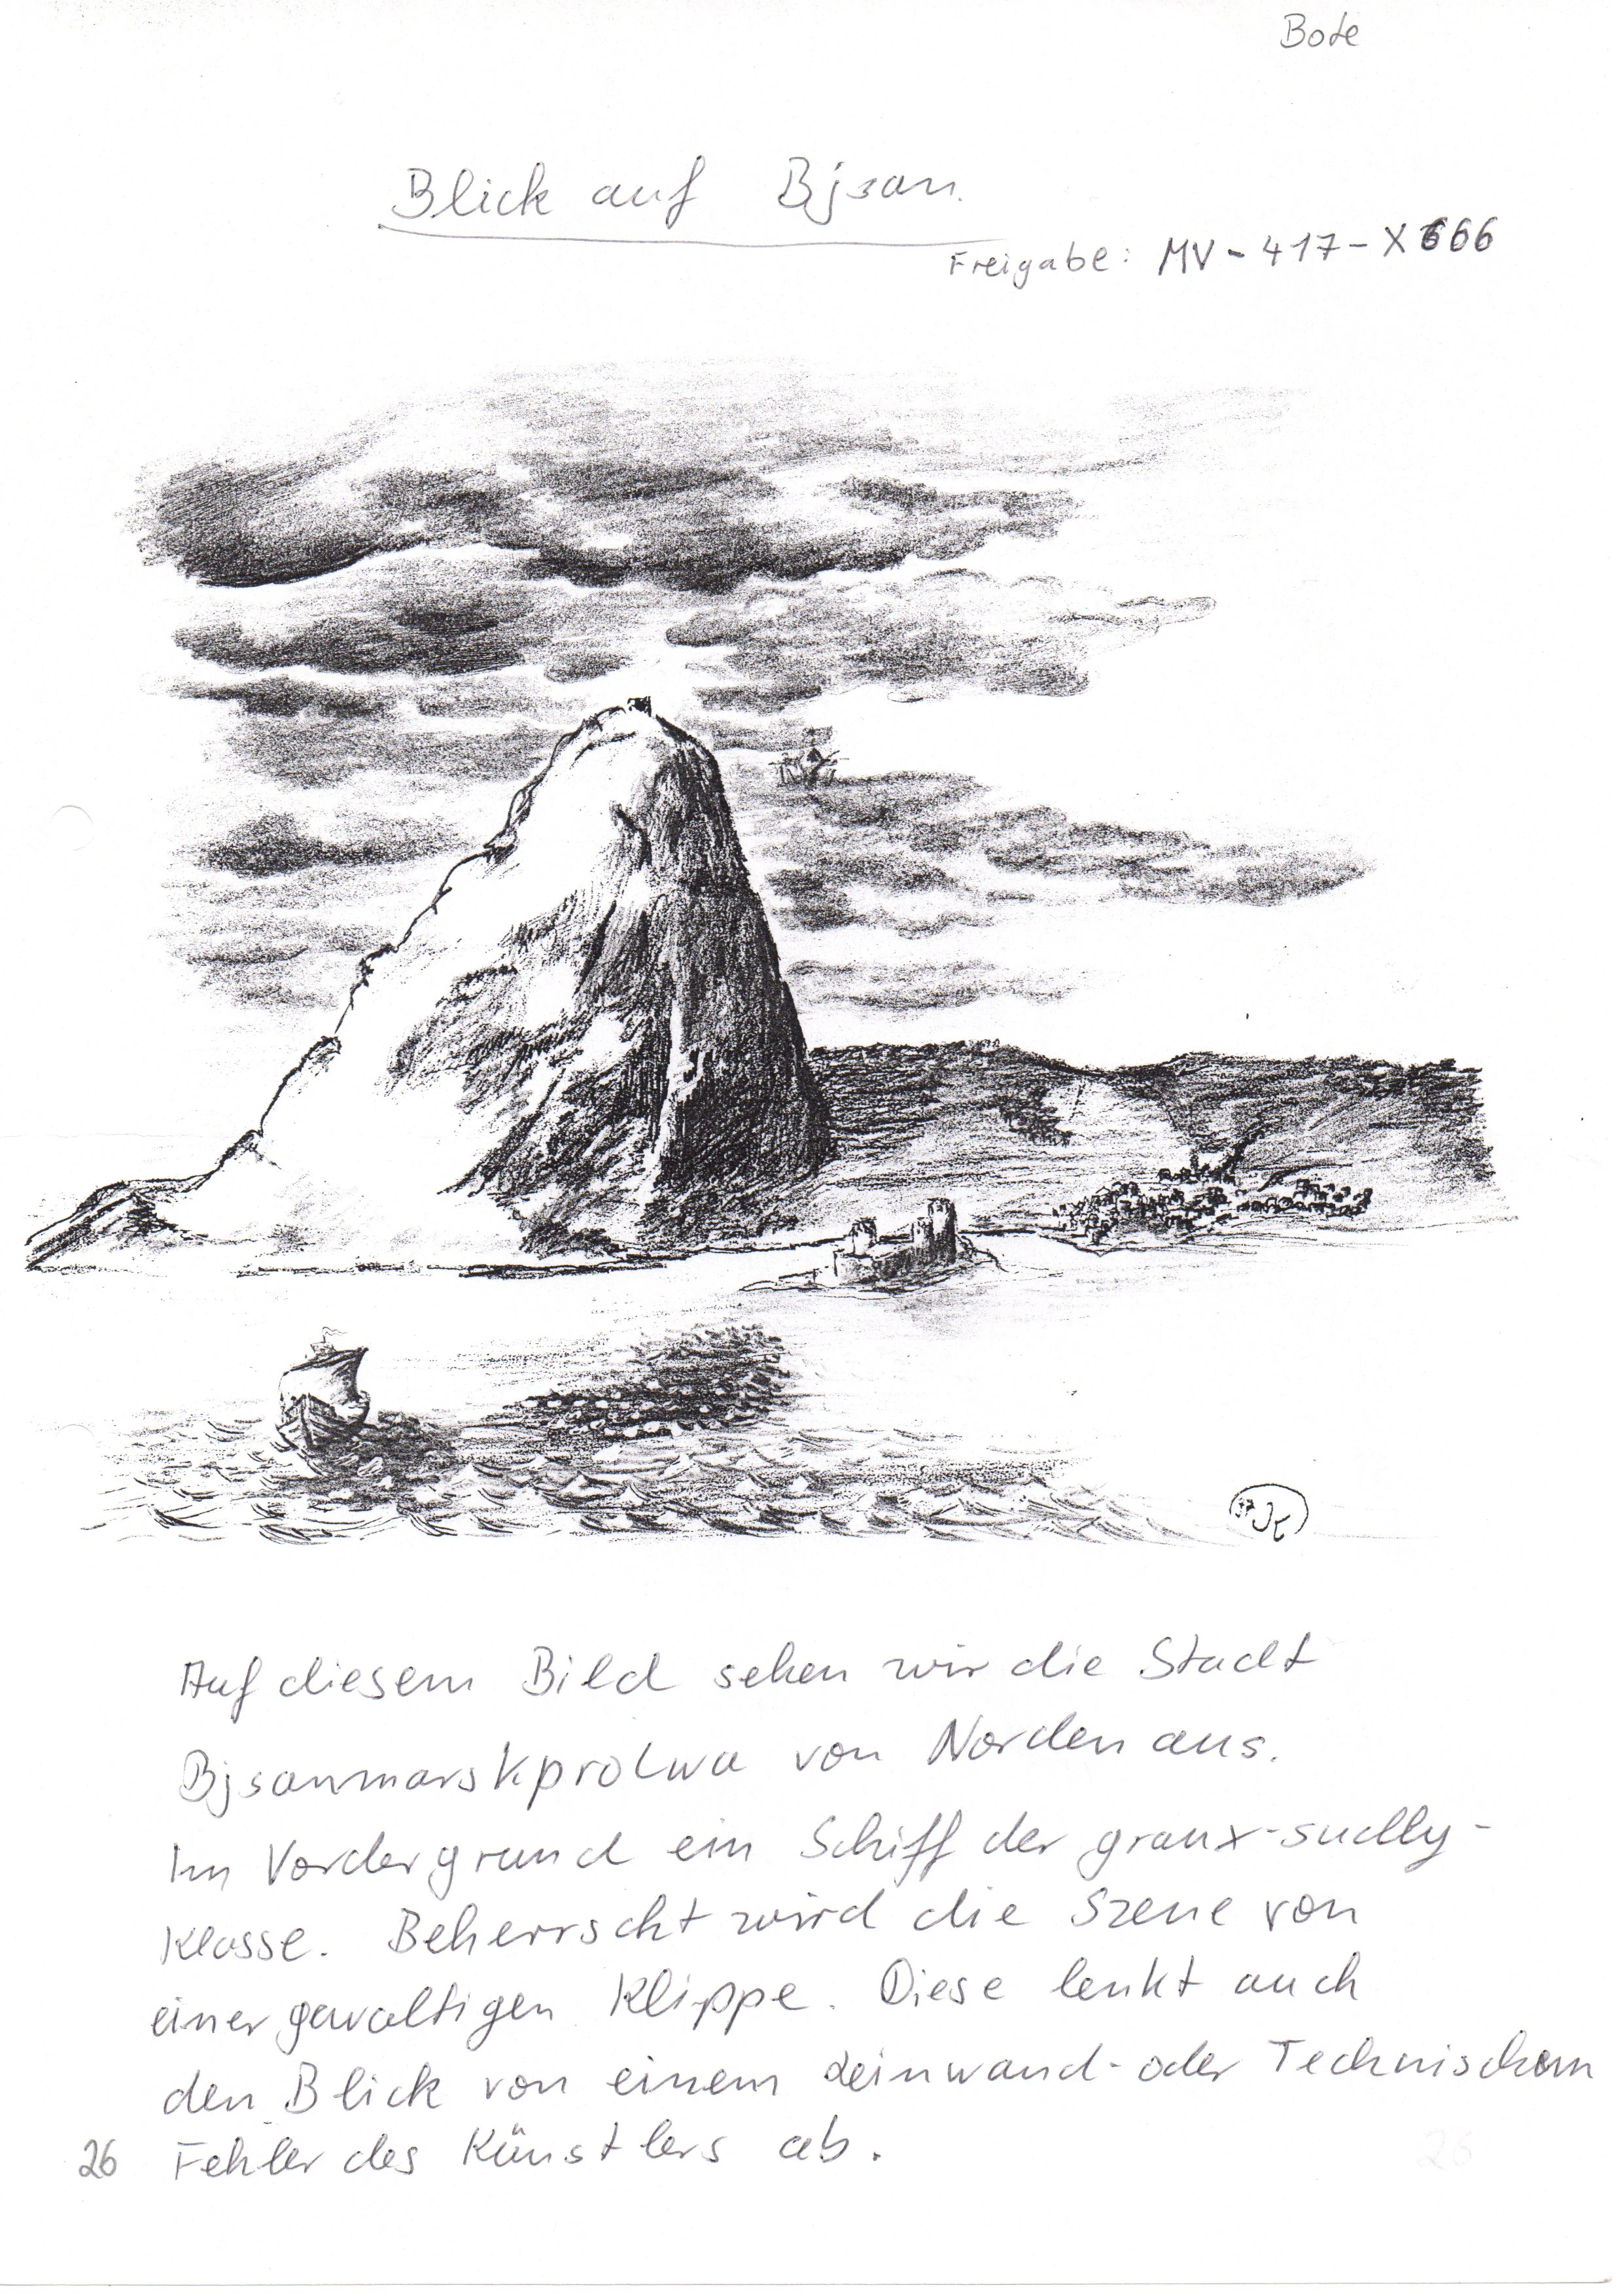 Bote
Blick auf Bjsan.
Freigabe: MV-417-X666
Auf diesem Bild sehen wir die Stadt
Bjsanmarskprolwa von Norden aus.
Im Vordergrund ein Schiff der graux-sudlly-
Klasse. Beherrscht wird die Szene von
einer gewaltigen Klippe. Diese lenkt auch
den Blick von einem Leinwand- oder Technischem
26 Fehler des Künstlers ab.